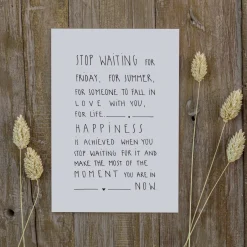 STOP WAITING FOR
FRIDAY, FOR SUMMER,
FOR SOMEONE TO FALL IN
LOVE WITH YOU,
FOR LIFE.
HAPPINESS
IS ACHIEVED WHEN YOU
STOP WAITING FOR IT AND
MAKE THE MOST OF THE
MOMENT YOU ARE IN
NOW.